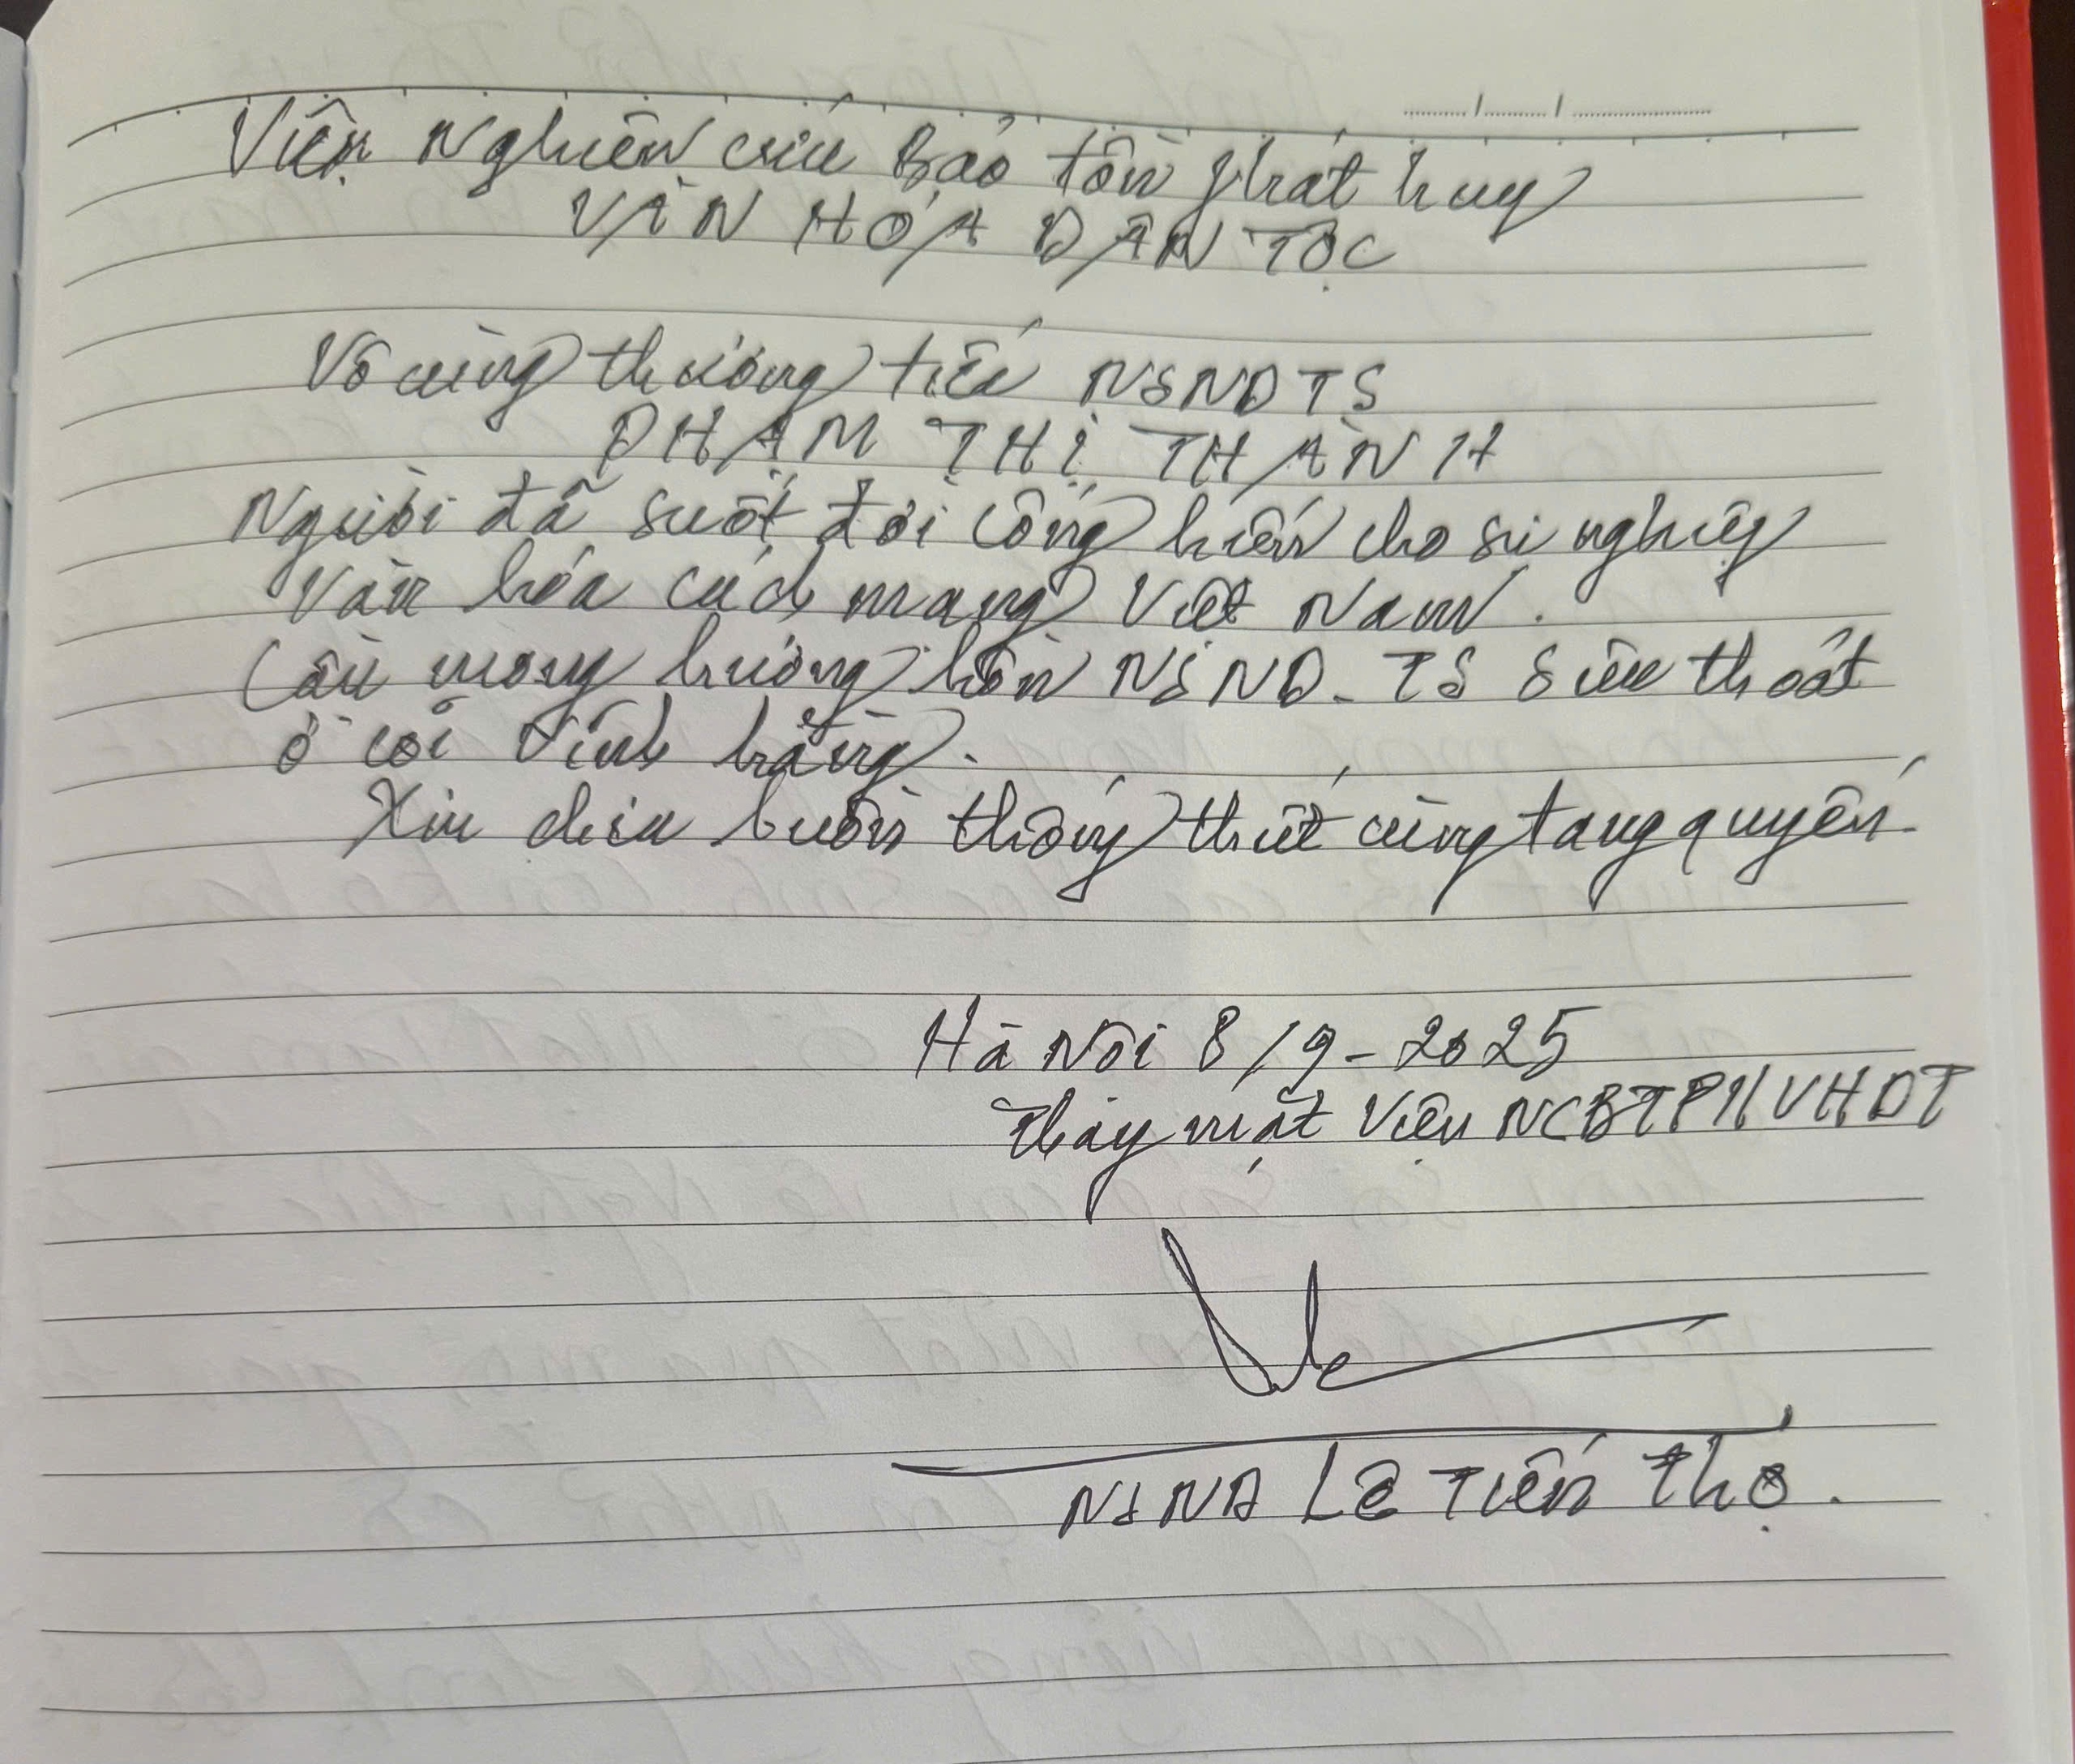 Viện Nghiên cứu Bảo tồn phát huy
VĂN HÓA DÂN TỘC
Vô cùng thương tiếc NSND TS
PHẠM THỊ THÀNH
Người đã suốt đời cống hiến cho sự nghiệp
Văn hóa cách mạng Việt Nam.
Cầu mong hương hồn NSND-TS siêu thoát
ở cõi Vĩnh hằng.
Xin chia buồn thống thiết cùng tang quyến.
Hà Nội 8/9-2025
Thay mặt Viện NCBTPHVHDT
NSND Lê Tiến Thọ.